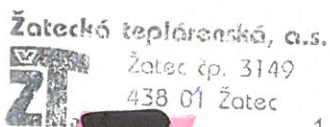 Žatecká teplárenská, a.s.
Žatec čp. 3149
438 01 Žatec
ŽT
1